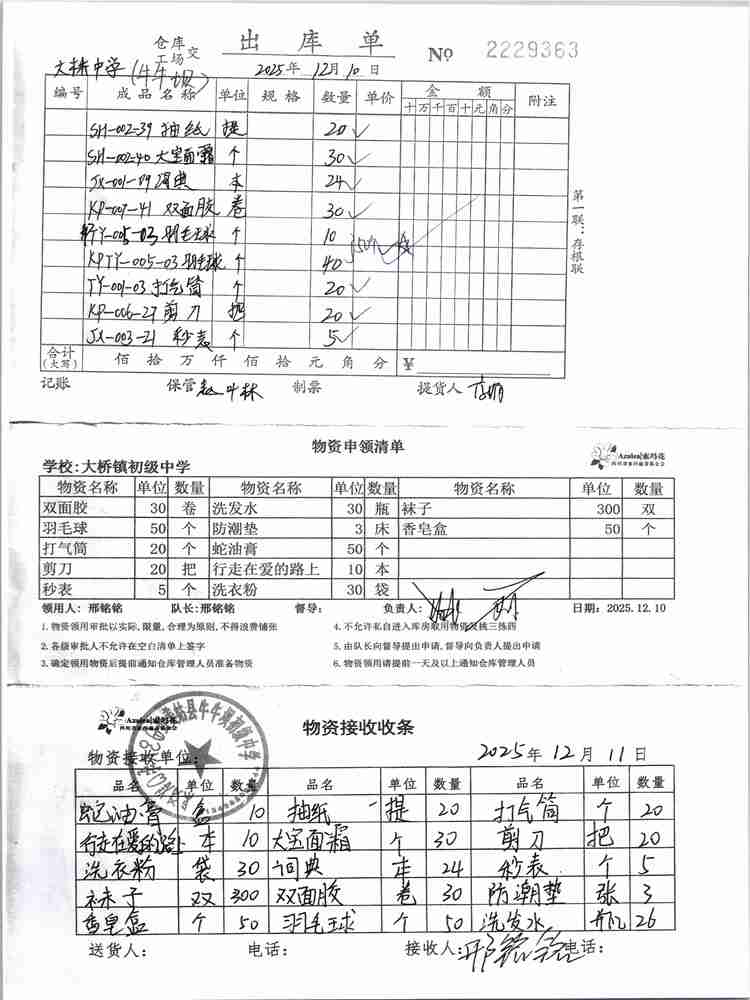 仓库
工场 交 出 库 单 № 2229363
大桥中学(牛牛坝) 2025年 12月 10日
编号 成品名称 单位 规格 数量 单价 金额 附注
十万千百十元角分
SH-002-39 抽纸 提 20
SH-002-40 大宝面霜 个 30
JX-001-09 词典 本 24
KP-007-41 双面胶 卷 30
TY-005-03 羽毛球 个 10
KPTY-005-03 羽毛球 个 40 50个
TY-001-03 打气筒 个 20
KP-006-27 剪刀 把 20
JX-003-21 秒表 个 5
合计
(大写) 佰 拾 万 仟 佰 拾 元 角 分 ¥
记账 保管 制票 提货人
第一联：存根联
物资申领清单
Azalea|索玛花
学校：大桥镇初级中学
物资名称 单位 数量 物资名称 单位 数量 物资名称 单位 数量
双面胶 30 卷 洗发水 30 瓶 袜子 300 双
羽毛球 50 个 防潮垫 3 床 香皂盒 50 个
打气筒 20 个 蛇油膏 50 个
剪刀 20 把 行走在爱的路上 10 本
秒表 5 个 洗衣粉 30 袋
领用人：邢铭铭 队长：邢铭铭 督导： 负责人： 日期：2025.12.10
1.物资领用审批以实际,限量,合理为原则,不得浪费铺张 4.不允许私自进入库房取用物资及挑三拣四
2.各级审批人不允许在空白清单上签字 5.由队长向督导提出申请,督导向负责人提出申请
3.确定领用物资后提前通知仓库管理人员准备物资 6.物资领用请提前一天及以上通知仓库管理人员
Azalea|索玛花
物资接收收条
物资接收单位： 2025年 12月 11日
品名 单位 数量 品名 单位 数量 品名 单位 数量
蛇油膏 盒 10 抽纸 提 20 打气筒 个 20
行走在爱的路上 本 10 大宝面霜 个 30 剪刀 把 20
洗衣粉 袋 30 词典 本 24 秒表 个 5
袜子 双 300 双面胶 卷 30 防潮垫 张 3
香皂盒 个 50 羽毛球 个 50 洗发水 瓶 26
送货人： 电话： 接收人：邢铭铭 电话：